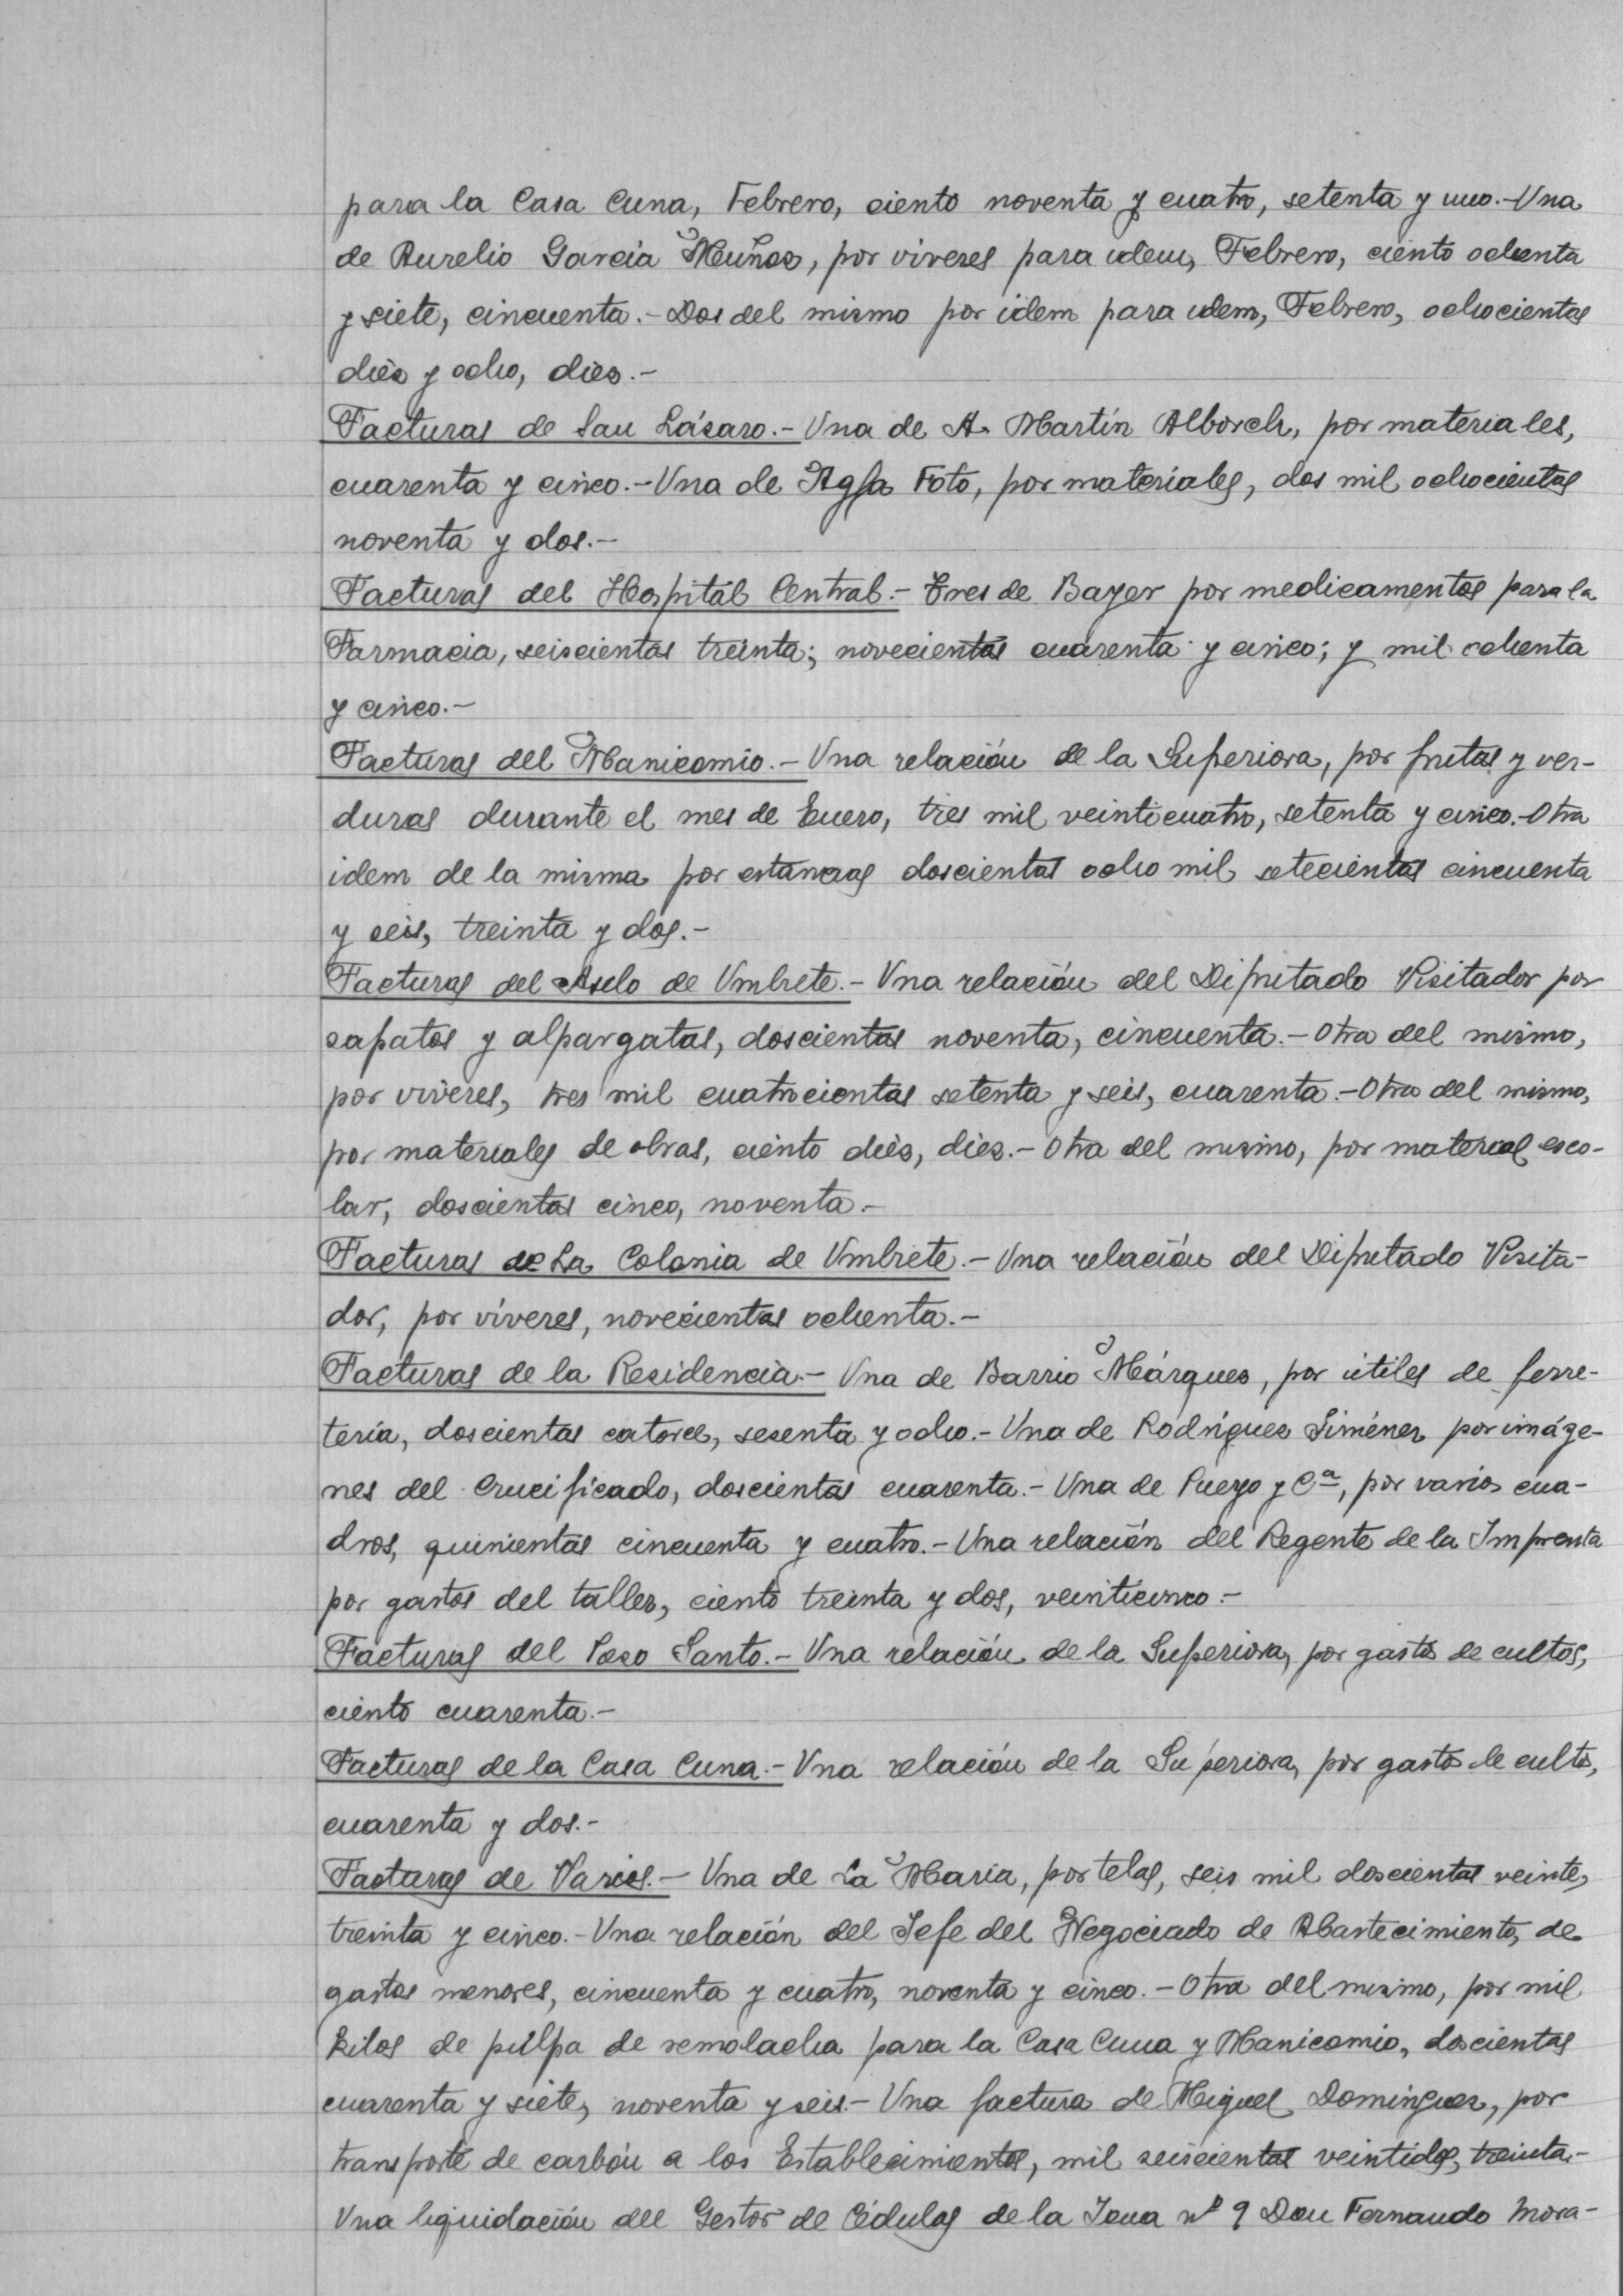 para la Casa Cuna, Febrero, ciento noventa y cuatro, setenta y uno.- Una
de Aurelio García Muñoz, por víveres para idem, Febrero, ciento ochenta
y siete, cincuenta.- Dos del mismo por idem para idem, Febrero, ochocientas
diez y ocho, diez.-
Facturas de San Lázaro.- Una de A. Martín Alborch, por materiales,
cuarenta y cinco.- Una de Agfa Foto, por materiales, dos mil ochocientas
noventa y dos.-
Facturas del Hospital Central.- Tres de Bayer por medicamentos para la
Farmacia, seiscientas treinta; novecientas cuarenta y cinco; y mil ochenta
y cinco.-
Facturas del Manicomio.- Una relación de la Superiora, por frutas y ver-
duras durante el mes de Enero, tres mil veinticuatro, setenta y cinco.- Otra
idem de la misma por estancias doscientas ocho mil setecientas cincuenta
y seis, treinta y dos.-
Facturas del Asilo de Umbrete.- Una relación del Diputado Visitador por
zapatos y alpargatas, doscientas noventa, cincuenta.- Otra del mismo,
por víveres, tres mil cuatrocientas setenta y seis, cuarenta.- Otra del mismo,
por materiales de obras, ciento diez, diez.- Otra del mismo, por material esco-
lar, doscientas cinco, noventa.-
Facturas de La Colonia de Umbrete.- Una relación del Diputado Visita-
dor, por víveres, novecientas ochenta.-
Facturas de la Residencia.- Una de Barrio Márquez, por útiles de ferre-
tería, doscientas catorce, sesenta y ocho.- Una de Rodríguez Jiménez por imáge-
nes del Crucificado, doscientas cuarenta.- Una de Pueyo y Cª, por varios cua-
dros, quinientas cincuenta y cuatro.- Una relación del Regente de la Imprenta
por gastos del taller, ciento treinta y dos, veinticinco.-
Facturas del Pozo Santo.- Una relación de la Superiora, por gastos de cultos,
ciento cuarenta.-
Facturas de la Casa Cuna.- Una relación de la Superiora, por gastos de culto,
cuarenta y dos.-
Facturas de Varios.- Una de La María, por telas, seis mil doscientas veinte,
treinta y cinco.- Una relación del Jefe del Negociado de Abastecimiento, de
gastos menores, cincuenta y cuatro, noventa y cinco.- Otra del mismo, por mil
kilos de pulpa de remolacha para la Casa Cuna y Manicomio, doscientas
cuarenta y siete, noventa y seis.- Una factura de Miguel Dominguez, por
transporte de carbón a los Establecimientos, mil seiscientas veintidos, treinta.-
Una liquidación del Gestor de Cédulas de la Zona nº 9 Don Fernando Mora-